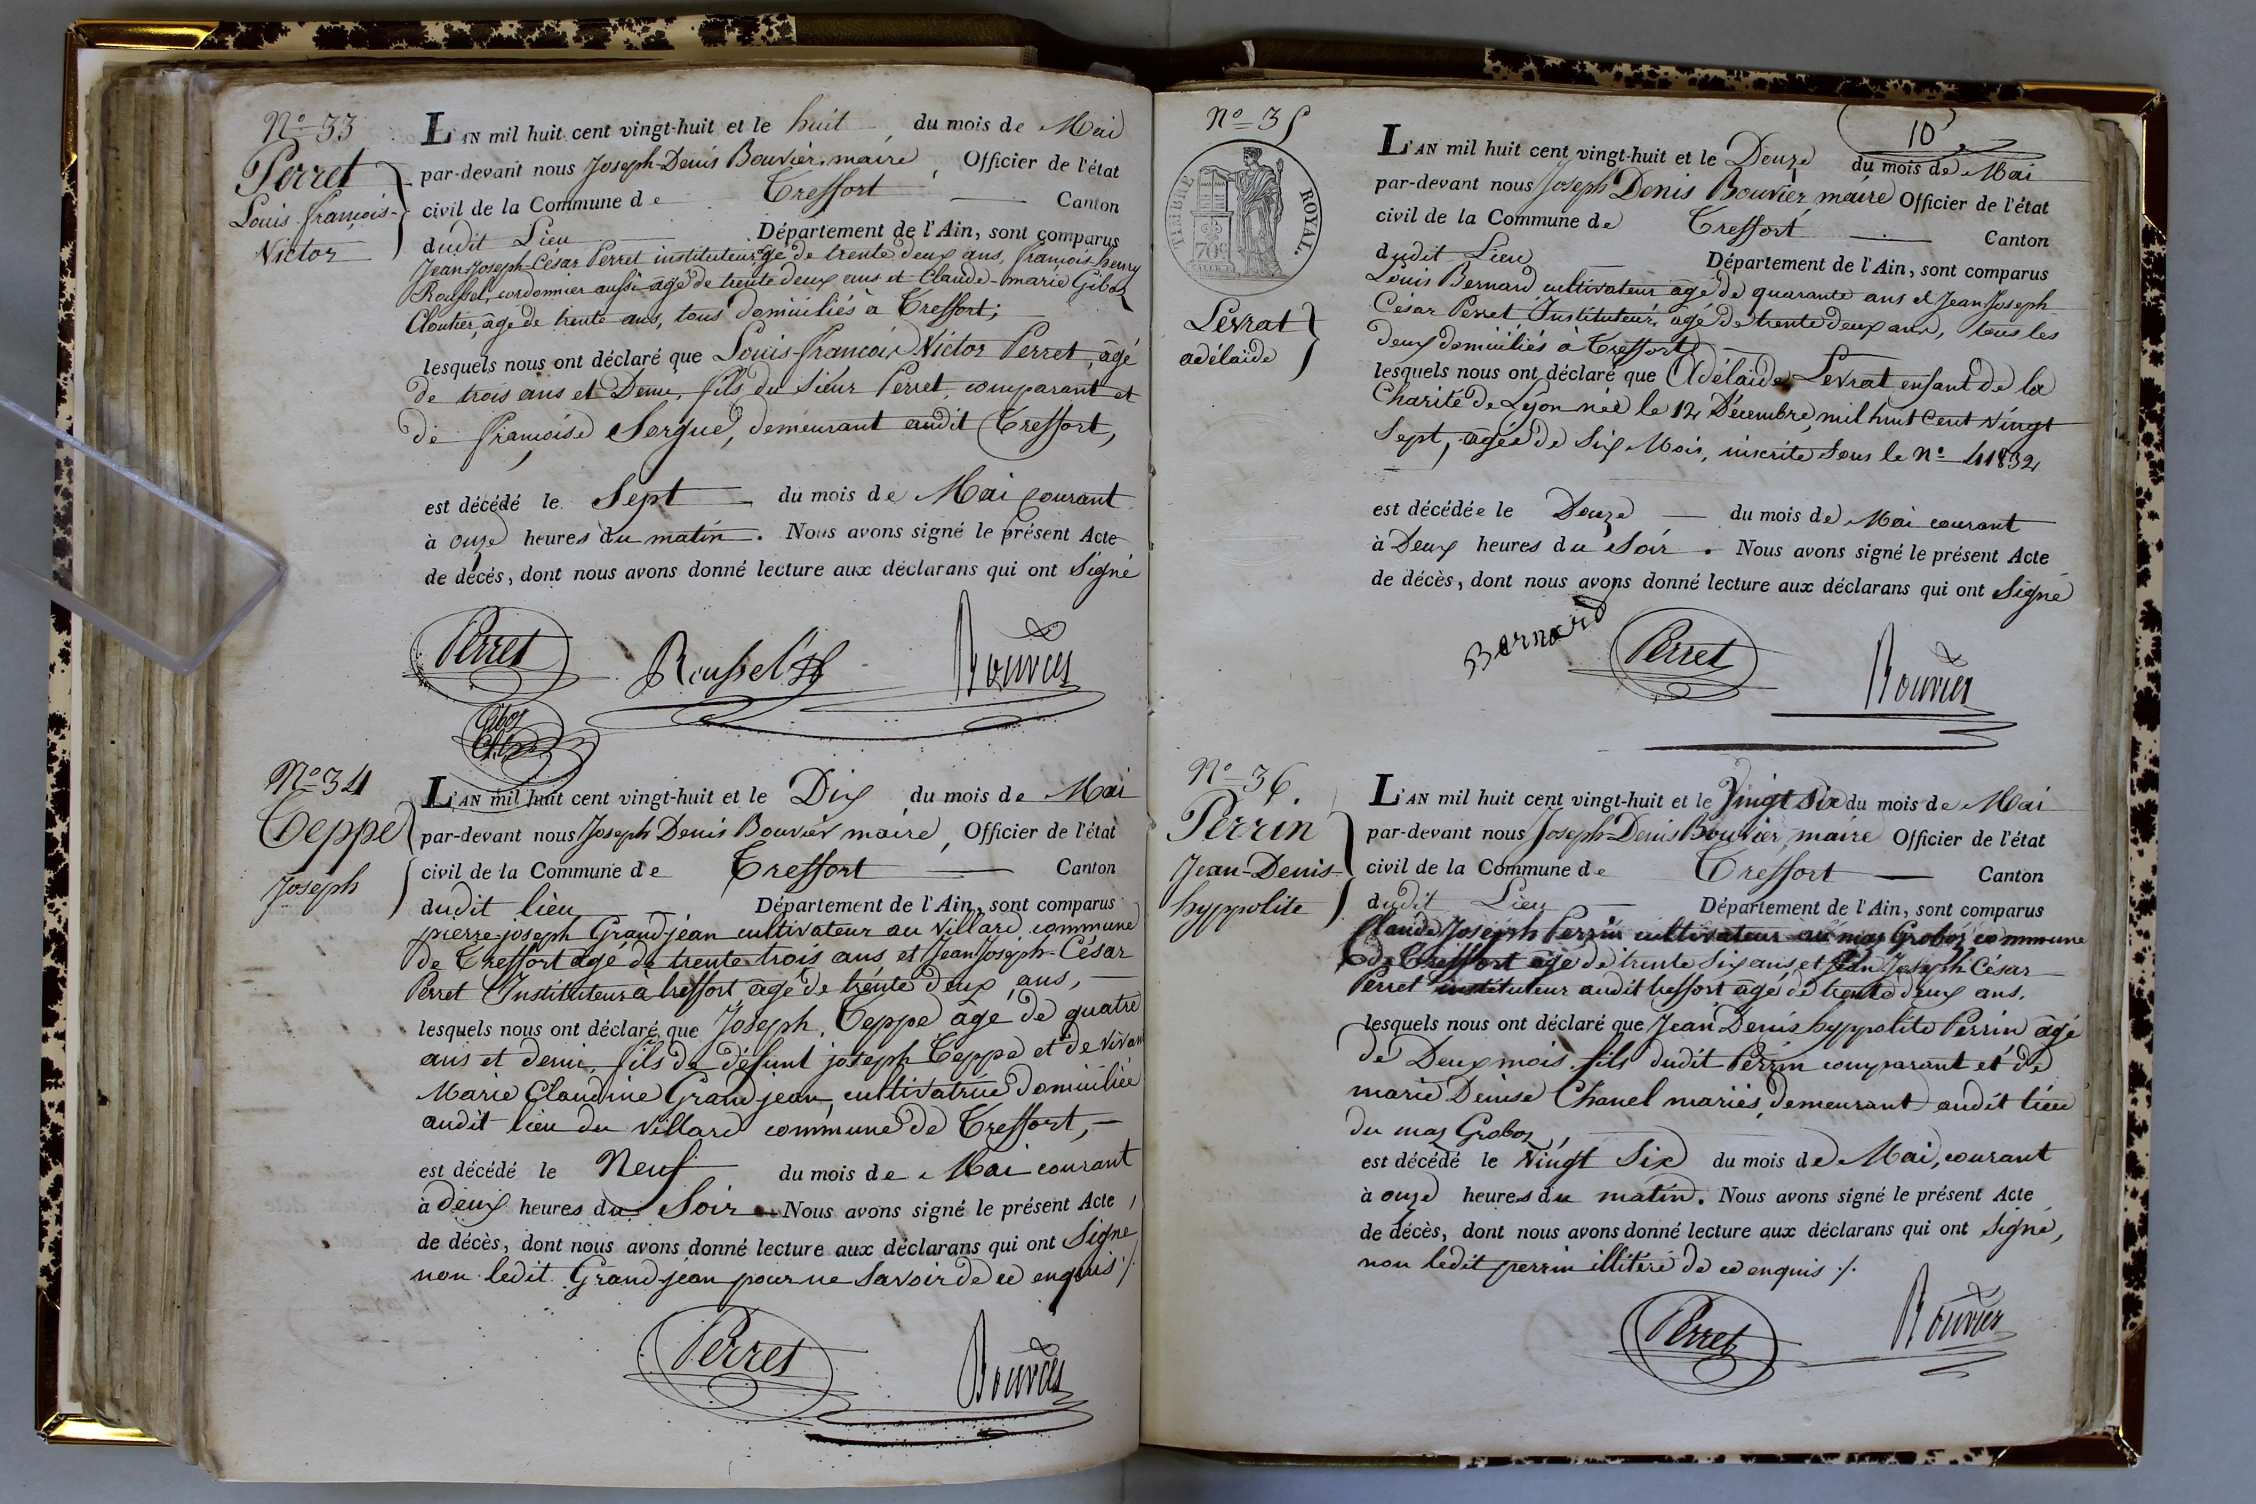 N° 33
Perret
Louis françois-
Victor
L'AN mil huit cent vingt-huit et le huit du mois de Mai
par-devant nous Joseph-Denis Bouvier, maire, Officier de l'état
civil de la Commune de Treffort Canton
dudit Lieu Département de l'Ain, sont comparus
Jean Joseph-César Perret instituteur âgé de trente deux ans, françois-henry
Roussel, cordonnier aussi âgé de trente deux ans et Claude-marie Giboz
Cloutier, âgé de trente ans, tous domiciliés à Treffort;
lesquels nous ont déclaré que Louis-françois Victor Perret, âgé
de trois ans et Demi, fils du Sieur Perret, comparant et
de françoise Sorgue, demeurant audit Treffort,
est décédé le Sept du mois de Mai courant
à onze heures du matin. Nous avons signé le présent Acte
de décès, dont nous avons donné lecture aux déclarans qui ont Signé
Perret Roussel Bouvier
Giboz
N° 34
Teppe
Joseph
L'AN mil huit cent vingt-huit et le Dix du mois de Mai
par-devant nous Joseph Denis Bouvier maire, Officier de l'état
civil de la Commune de Treffort Canton
dudit lieu Département de l'Ain, sont comparus
pierre-joseph Grandjean cultivateur au Villard commune
de Treffort âgé de trente-trois ans et Jean Joseph-César
Perret Instituteur a treffort âgé de trente deux ans,
lesquels nous ont déclaré que Joseph Teppe âgé de quatre
ans et demi, fils de défunt joseph Teppe et de vivan
Marie Claudine Grandjean, cultivatrice domiciliée
audit lieu du Villard commune de Treffort,
est décédé le Neuf du mois de Mai courant
à deux heures du Soir. Nous avons signé le présent Acte
de décès, dont nous avons donné lecture aux déclarans qui ont Signé
non ledit Grandjean pour ne Savoir de ce enquis ./.
Perret Bouvier
10
N° 35
TIMBRE ROYAL.
70c
Levrat
adélaïde
L'AN mil huit cent vingt-huit et le Douze du mois de Mai
par-devant nous Joseph Denis Bouvier, maire Officier de l'état
civil de la Commune de Treffort Canton
dudit Lieu Département de l'Ain, sont comparus
Louis Bernard cultivateur âgé de quarante ans et Jean Joseph
César Perret Instituteur, âgé de trente deux ans, tous les
deux domiciliés à Treffort
lesquels nous ont déclaré que Adélaïde Levrat enfant de la
Charité de Lyon née le 12 Décembre, mil huit Cent Vingt
Sept, agée de Six Mois, inscrite Sous le N° 41832
est décédée le Douze du mois de Mai courant
à Deux heures du Soir. Nous avons signé le présent Acte
de décès, dont nous avons donné lecture aux déclarans qui ont Signé
Bernard Perret Bouvier
N° 36.
Perrin
Jean-Denis-
hyppolite
L'AN mil huit cent vingt-huit et le Vingt Six du mois de Mai
par-devant nous Joseph-Denis Bouvier, maire Officier de l'état
civil de la Commune de Treffort Canton
dudit Lieu Département de l'Ain, sont comparus
Claude Joseph Perrin cultivateur au mas Groboz commune
de Treffort âgé de trente Six ans, et Jean Joseph César
Perret instituteur audit treffort agé de trente deux ans.
lesquels nous ont déclaré que Jean Denis hyppolite Perrin âgé
de Deux mois, fils dudit Perrin comparant et de
marie Denise Chanel mariés, demeurant audit lieu
du mas Groboz,
est décédé le Vingt Six du mois de Mai, courant
à onze heures du matin. Nous avons signé le présent Acte
de décès, dont nous avons donné lecture aux déclarans qui ont Signé,
non ledit perrin illitéré de ce enquis ./.
Perret Bouvier